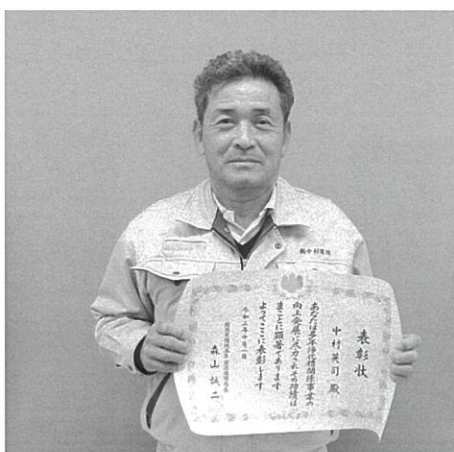 ㈱中村電機
表彰状
中村英司 殿
あなたは多年浄化槽関係事業の
向上発展に尽力されその功績は
まことに顕著であります
よってここに表彰します
令和二年十月一日
森山誠二